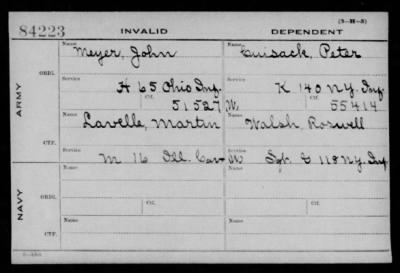 (3-H-3)
84223 INVALID DEPENDENT
Name Name
Meyer, John Cuisack, Peter
ARMY
ORIG.
Service Service
H 65 Ohio Inf. K 140 N.Y. Inf.
Ctf. Ctf.
51527 W. 55414
Name Name
Lavelle, Martin Walsh, Roswell
CTF.
Service Service
M 16 Ill. Cav W Sgt. C 118 N.Y. Inf
NAVY
Name Name
ORIG.
Service Ctf. Service Ctf.
Name Name
CTF.
Service Service